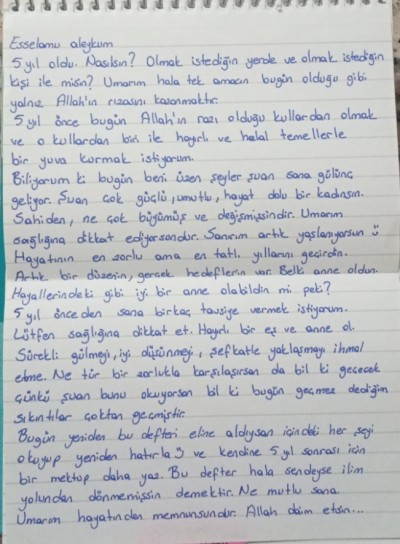 Esselamu aleykum
5 yıl oldu. Nasılsın? Olmak istediğin yerde ve olmak istediğin
kişi ile misin? Umarım hala tek amacın bugün olduğu gibi
yalnız Allah'ın rızasını kazanmaktır.
5 yıl önce bugün Allah'ın razı olduğu kullardan olmak
ve o kullardan biri ile hayırlı ve helal temellerle
bir yuva kurmak istiyorum.
Biliyorum ki bugün beni üzen şeyler şuan sana gülünç
geliyor. Şuan çok güçlü, umutlu, hayat dolu bir kadınsın.
Sahiden, ne çok büyümüş ve değişmişsindir. Umarım
sağlığına dikkat ediyorsundur. Sanırım artık yaşlanıyorsun
Hayatının en zorlu ama en tatlı yıllarını geçirdin.
Artık bir düzenin, gerçek hedeflerin var. Belki anne oldun.
Hayallerindeki gibi iyi bir anne olabildin mi peki?
5 yıl önceden sana birkaç tavsiye vermek istiyorum.
Lütfen sağlığına dikkat et. Hayırlı bir eş ve anne ol.
Sürekli gülmeyi, iyi düşünmeyi, şefkatle yaklaşmayı ihmal
etme. Ne tür bir zorlukla karşılaşırsan da bil ki geçecek
çünkü şuan bunu okuyorsan bil ki bugün geçmez dediğim
sıkıntılar çoktan geçmiştir.
Bugün yeniden bu defteri eline aldıysan içindeki her şeyi
okuyup yeniden hatırla ve kendine 5 yıl sonrası için
bir mektup daha yaz. Bu defter hala sendeyse ilim
yolundan dönmemişsin demektir. Ne mutlu sana.
Umarım hayatından memnunsundur. Allah daim etsin...